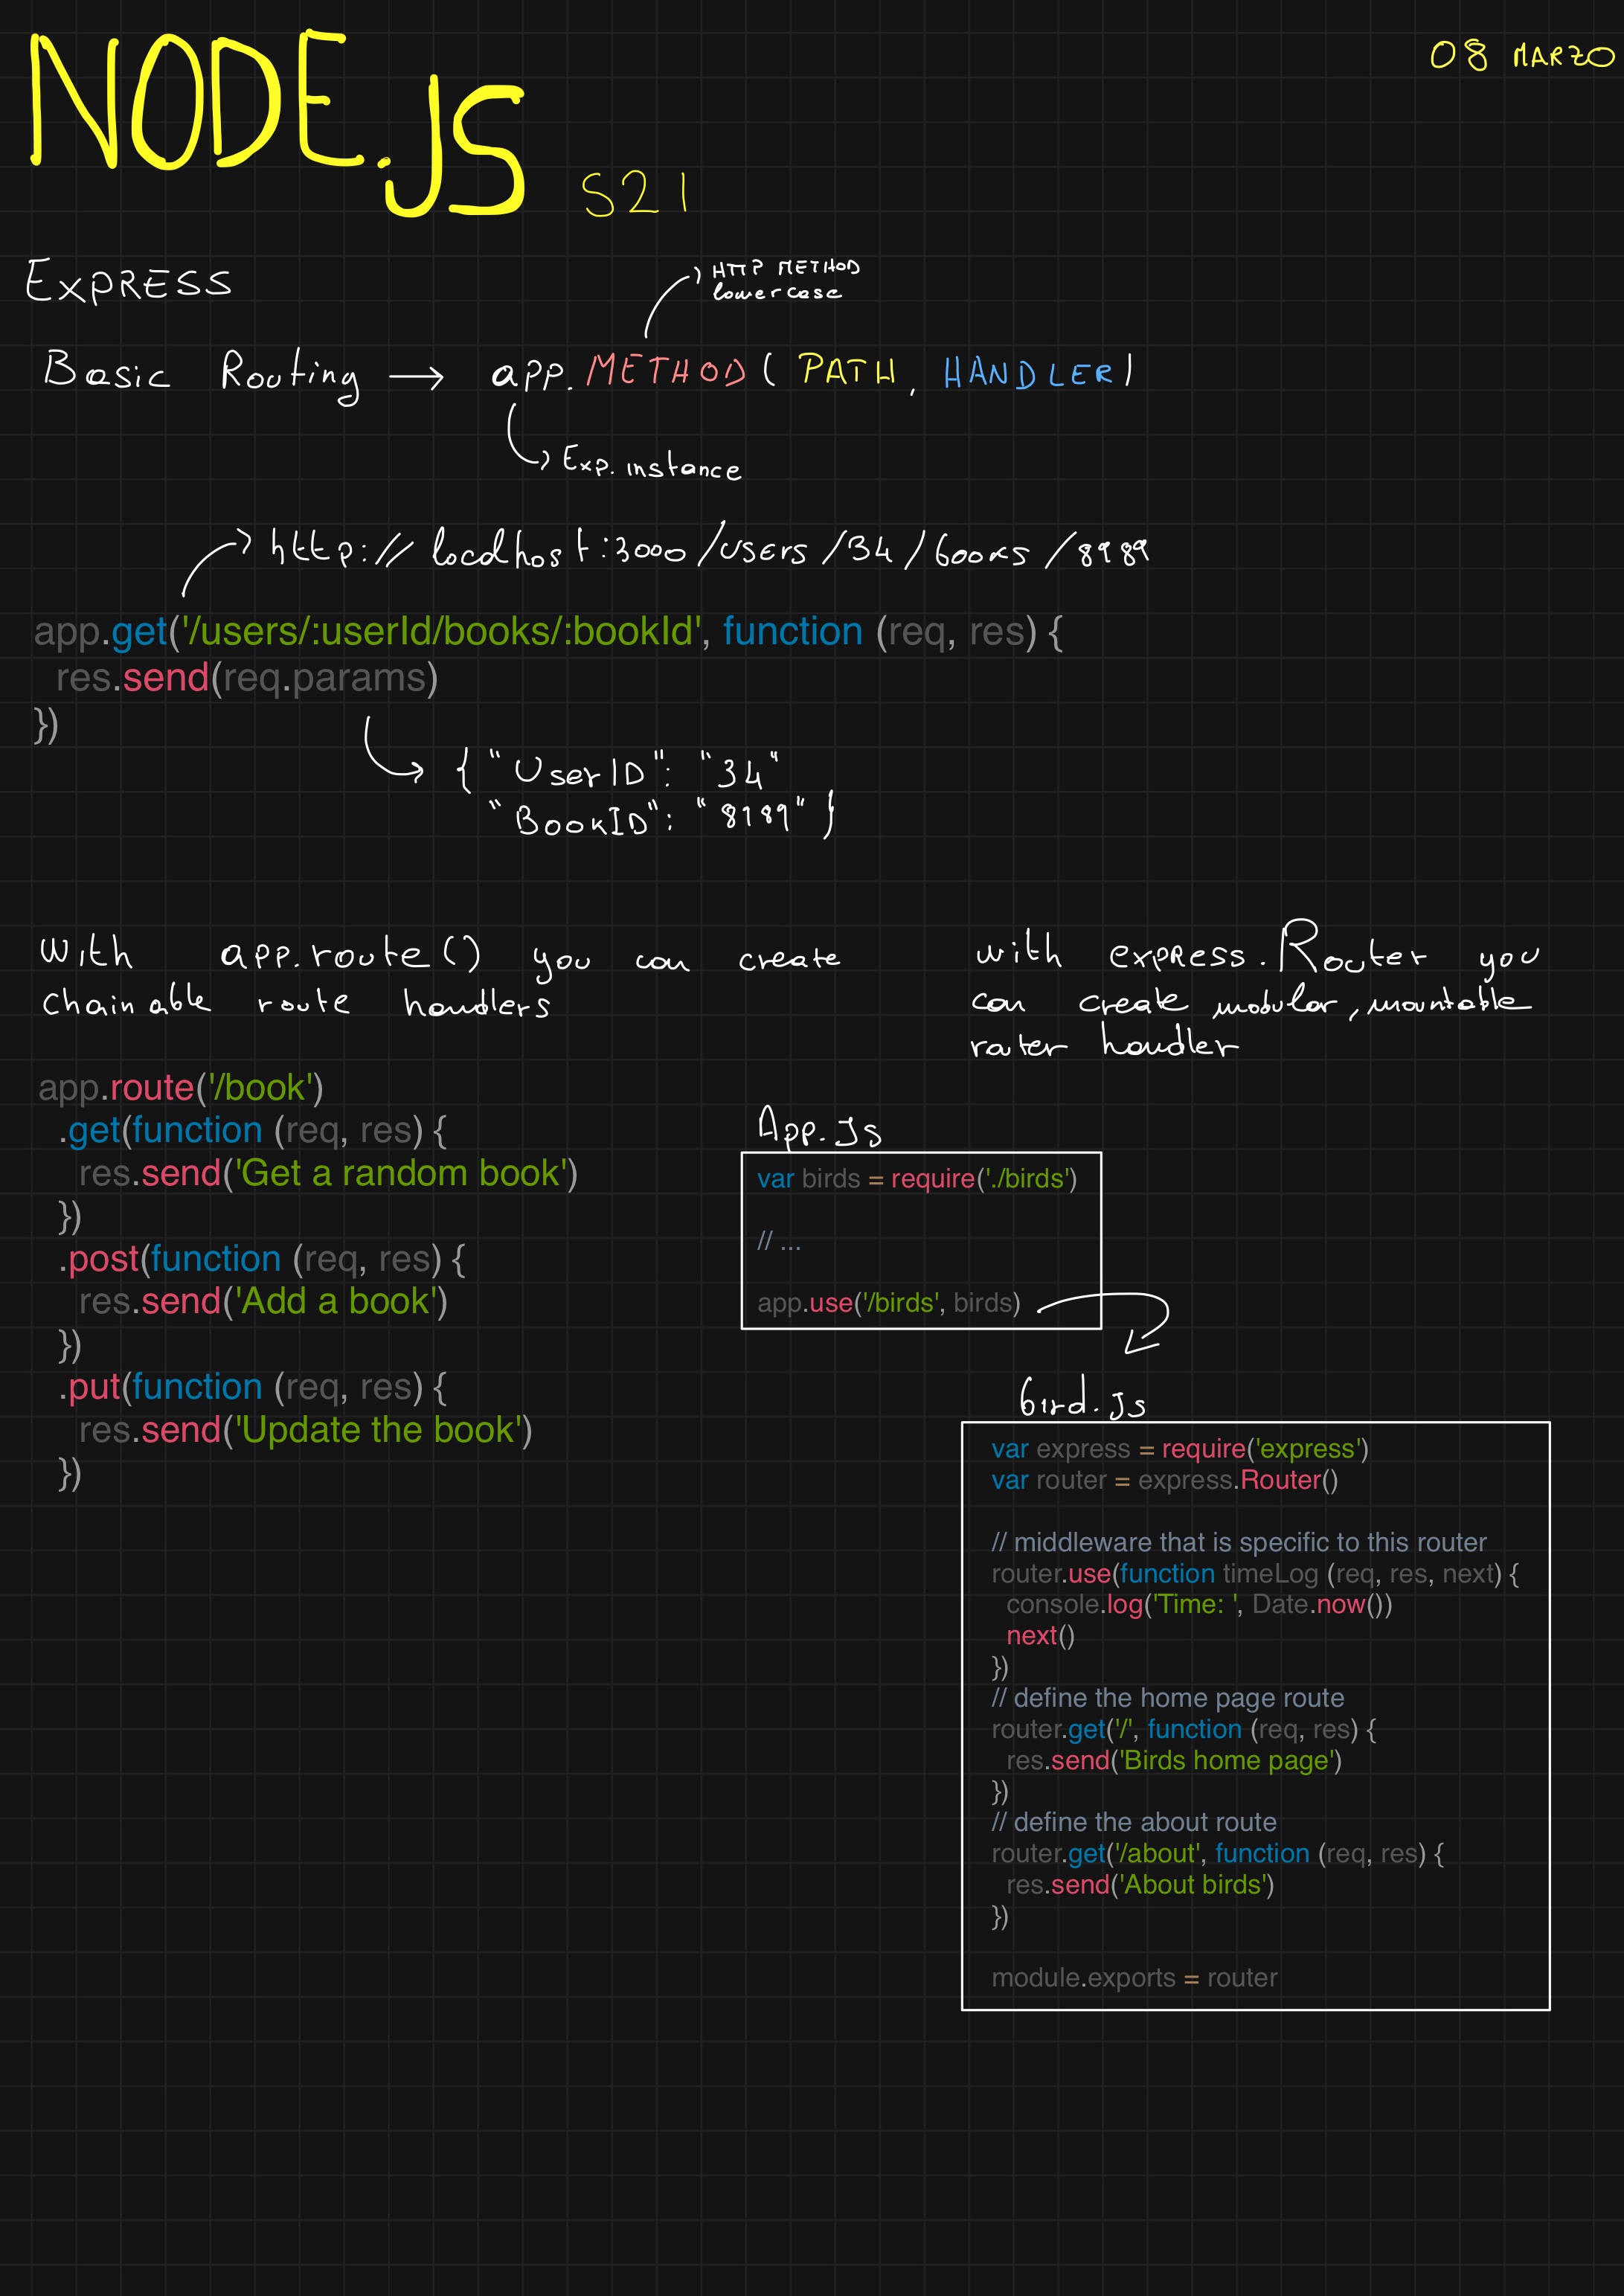 NODE.JS S21
08 MARZO
EXPRESS
HTTP METHOD
lowercase
Basic Routing → app.METHOD(PATH, HANDLER)
Exp. instance
http://localhost:3000/users/34/books/8989
app.get('/users/:userId/books/:bookId', function (req, res) {
res.send(req.params)
})
{ "UserID": "34"
"BookID": "8989" }
With app.route() you can create
chainable route handlers
app.route('/book')
.get(function (req, res) {
res.send('Get a random book')
})
.post(function (req, res) {
res.send('Add a book')
})
.put(function (req, res) {
res.send('Update the book')
})
with express.Router you
can create modular, mountable
router handler
App.Js
var birds = require('./birds')
// ...
app.use('/birds', birds)
bird.js
var express = require('express')
var router = express.Router()
// middleware that is specific to this router
router.use(function timeLog (req, res, next) {
console.log('Time: ', Date.now())
next()
})
// define the home page route
router.get('/', function (req, res) {
res.send('Birds home page')
})
// define the about route
router.get('/about', function (req, res) {
res.send('About birds')
})
module.exports = router